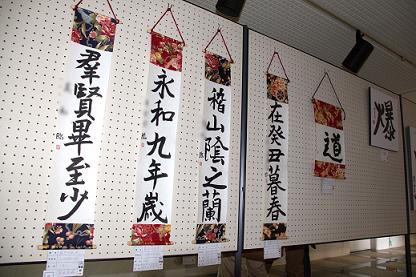 群賢畢至少
永和九年歳
稽山陰之蘭
在癸丑暮春
道
爆